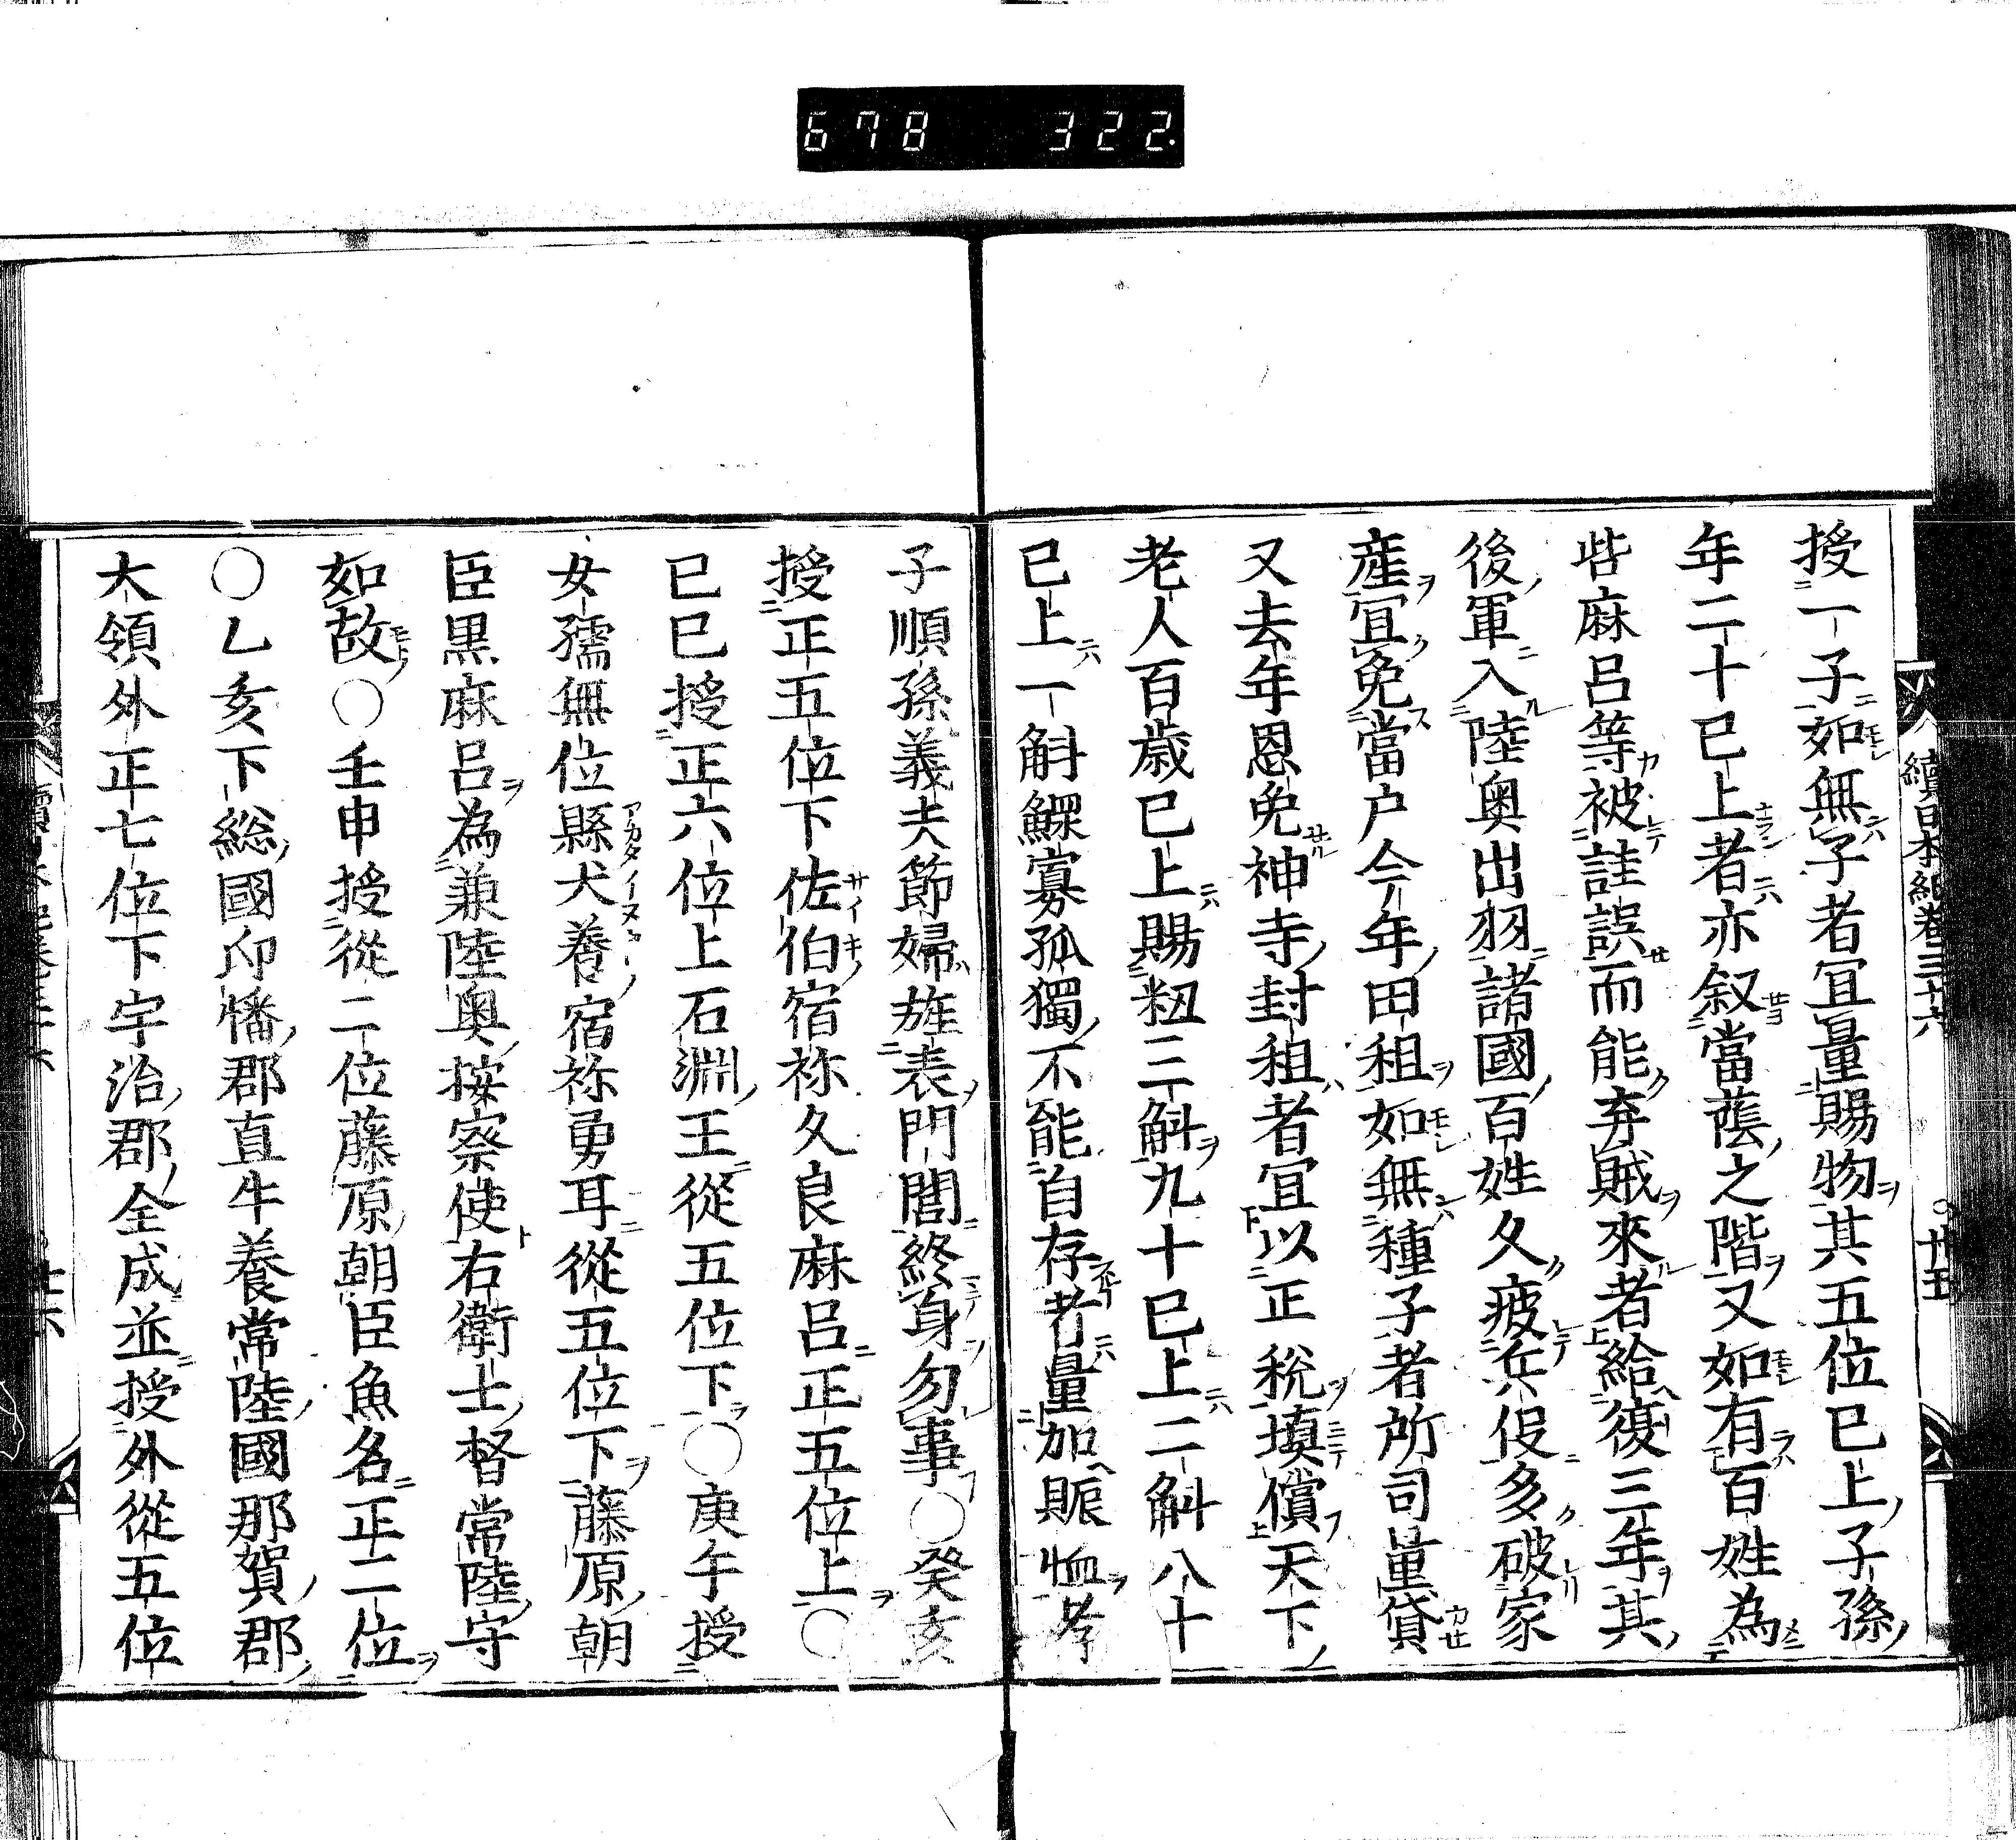 678 322
續日本紀卷三十六 廿五
授一子如無子者宜量賜物其五位已上子孫
年二十已上者亦叙當蔭之階又如有百姓為
呰麻呂等被詿誤而能弃賊來者給復三年其
後軍入陸奥出羽諸國百姓久疲兵役多破家
産宜免當户今年田租如無種子者所司量貸
又去年恩免神寺封租者宜以正税填償天下
老人百歳已上賜籾三斛九十已上二斛八十
已上一斛鰥寡孤獨不能自存者量加賑恤孝
子順孫義夫節婦旌表門閭終身勿事○癸亥
授正五位下佐伯宿祢久良麻呂正五位上○
已巳授正六位上石淵王從五位下○庚午授
女孺無位縣犬養宿祢勇耳從五位下藤原朝
臣黒麻呂為兼陸奥按察使右衛士督常陸守
如故○壬申授從二位藤原朝臣魚名正二位
○乙亥下総國印幡郡直牛養常陸國那賀郡
大領外正七位下宇治郡全成並授外從五位